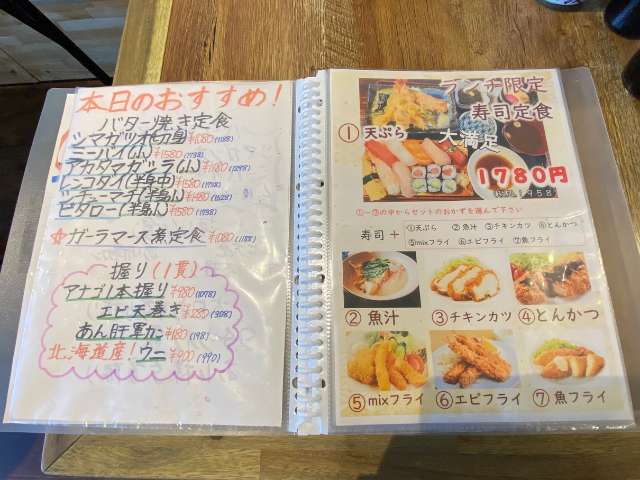 本日のおすすめ!
バター焼き定食
シマガツオ(切身)¥1080(1188)
ミーバイ(小)¥1580(1738)
アカダマガーラ(小)¥1180(1298)
レンコダイ(半身中)¥1580(1738)
(半身小)¥1480(1628)
ビタロー(半身小)¥1580(1738)
☆ガーラマース煮定食¥1080(1188)
握り(1貫)
アナゴ1本握り¥980(1078)
エビ天巻き¥280(308)
あん肝軍カン¥180(198)
北海道産!ウニ¥900(990)
ランチ限定
寿司定食
①天ぷら
大満足
1780円
税込1958
①~⑦の中からセットのおかずを選んで下さい
寿司+
①天ぷら ②魚汁 ③チキンカツ ④とんかつ
⑤mixフライ ⑥エビフライ ⑦魚フライ
②魚汁
③チキンカツ
④とんかつ
⑤mixフライ
⑥エビフライ
⑦魚フライ